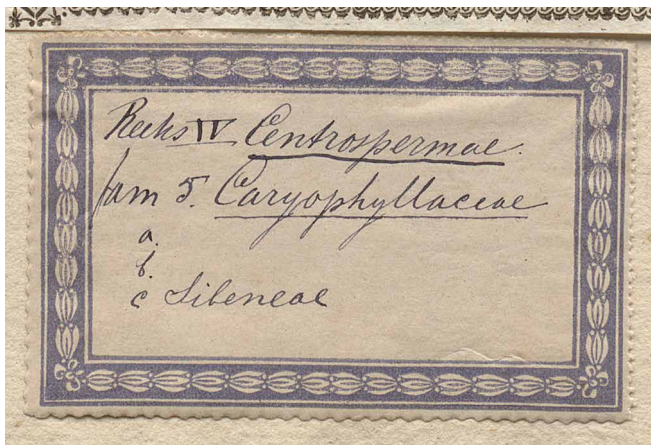 Reeks IV Centrospermae.
fam 5. Caryophyllaceae
a.
b.
c Sileneae